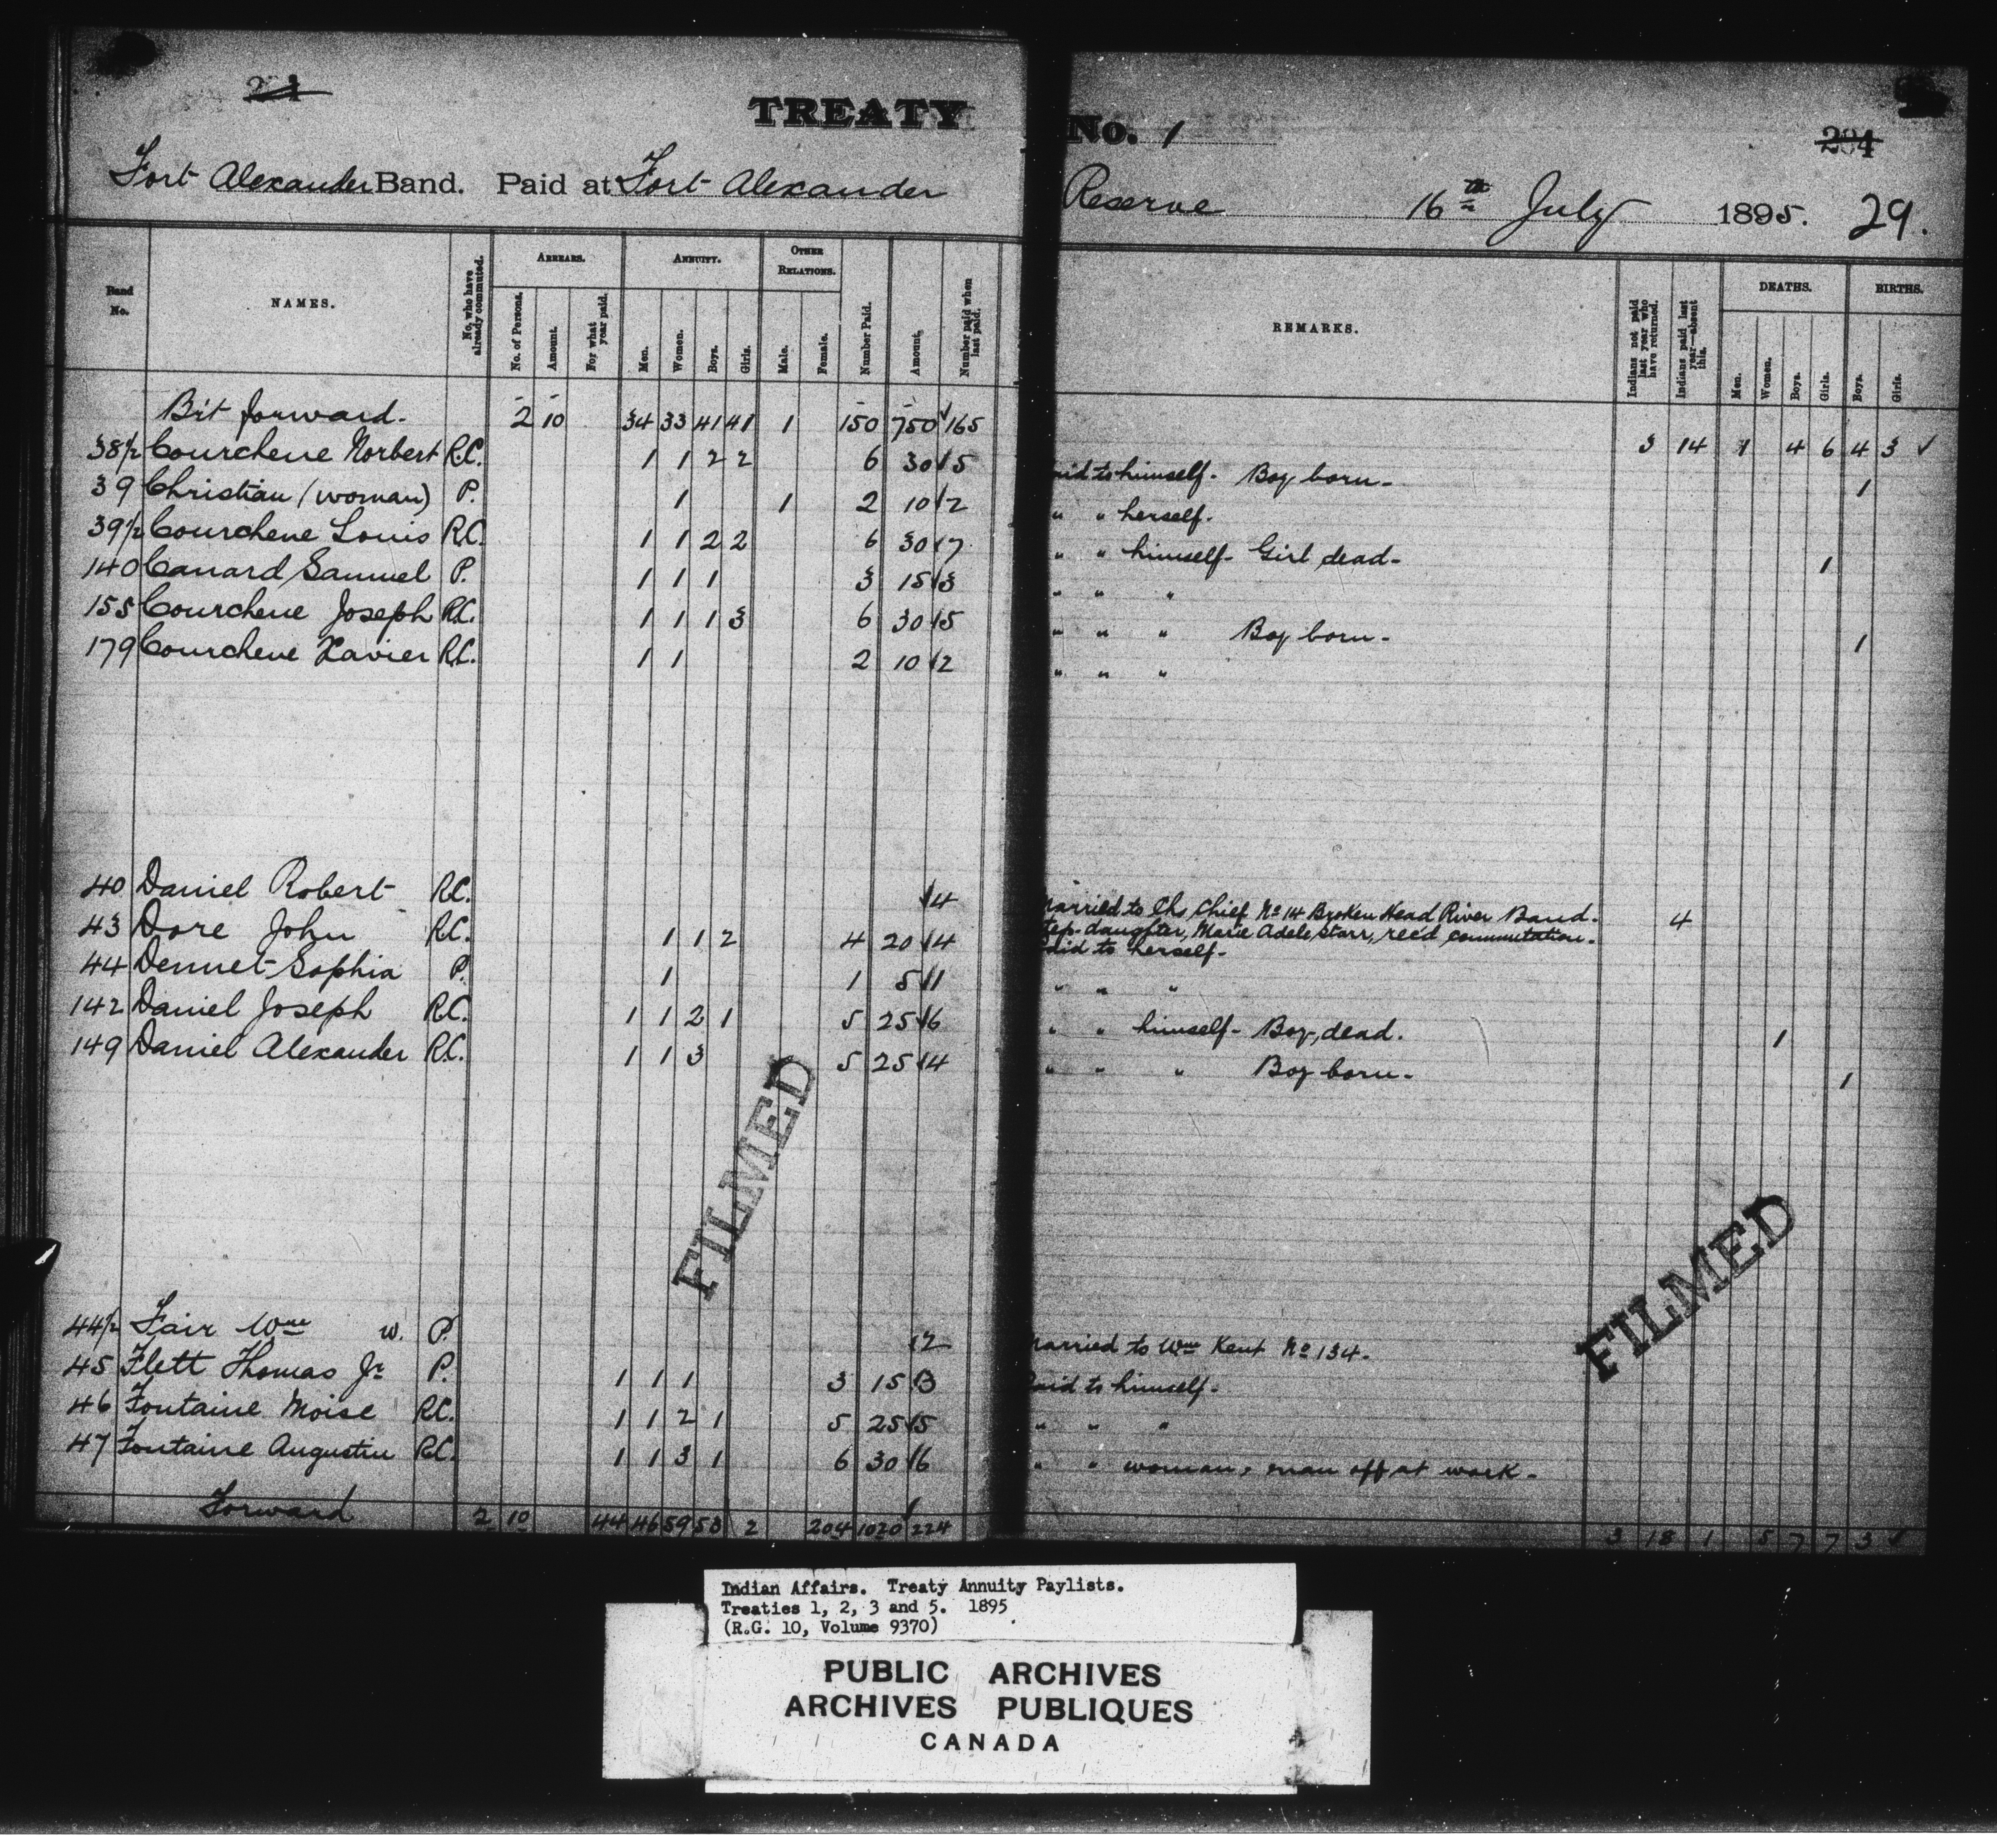 TREATY No. 1
204
Fort Alexander Band. Paid at Fort Alexander Reserve 16th July 1895. 29.
Band No. NAMES. No. who have already commuted. ARREARS. No. of Persons. Amount. For what year paid. ANNUITY. Men. Women. Boys. Girls. OTHER RELATIONS. Male. Female. Number Paid. Amount. Number paid when last paid. REMARKS. Indians not paid last year who have returned. Indians paid last year—absent this. DEATHS. Men. Women. Boys. Girls. BIRTHS. Boys. Girls.
Brt forward. 2 10 34 33 41 41 1 150 750 165 3 14 1 4 6 4 3 ✓
38½ Courchene Norbert R.C. 1 1 2 2 6 30 ✓ 5 Paid to himself. Boy born. 1
39 Christian (woman) P. 1 1 2 10 ✓ 2 " " herself.
39½ Courchene Louis R.C. 1 1 2 2 6 30 ✓ 7 " " himself. Girl dead. 1
140 Canard Samuel P. 1 1 1 3 15 ✓ 3 " " "
155 Courchene Joseph R.C. 1 1 1 3 6 30 ✓ 5 " " " Boy born. 1
179 Courchene Xavier R.C. 1 1 2 10 ✓ 2 " " "
40 Daniel Robert R.C. ✓ 4 Married to Chs Chief No 14 Broken Head River Band. 4
Step-daughter, Marie Adele Starr, rec'd commutation.
43 Dore John R.C. 1 1 2 4 20 ✓ 4 Paid to herself.
44 Dennet Sophia P. 1 1 5 ✓ 1 " " "
142 Daniel Joseph R.C. 1 1 2 1 5 25 ✓ 6 " " himself. Boy, dead. 1
149 Daniel Alexander R.C. 1 1 3 5 25 ✓ 4 " " " Boy born. 1
FILMED
FILMED
44½ Fair Wm w. P. ✓ 2 Married to Wm Kent No 134.
45 Flett Thomas Jr P. 1 1 1 3 15 ✓ 3 Paid to himself.
46 Fontaine Moise R.C. 1 1 2 1 5 25 ✓ 5 " " "
47 Fontaine Augustin R.C. 1 1 3 1 6 30 ✓ 6 " " woman, man off at work.
Forward 2 10 44 46 59 53 2 204 1020 ✓ 224 3 18 1 5 7 7 3 ✓
Indian Affairs. Treaty Annuity Paylists.
Treaties 1, 2, 3 and 5. 1895
(R.G. 10, Volume 9370)
PUBLIC ARCHIVES
ARCHIVES PUBLIQUES
CANADA